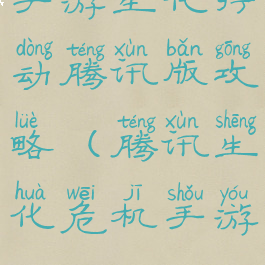 手游生化行
dòng téng xùn bǎn gōng
动腾讯版攻
lüè téng xùn shēng
略（腾讯生
huà wēi jī shǒu yóu
化危机手游